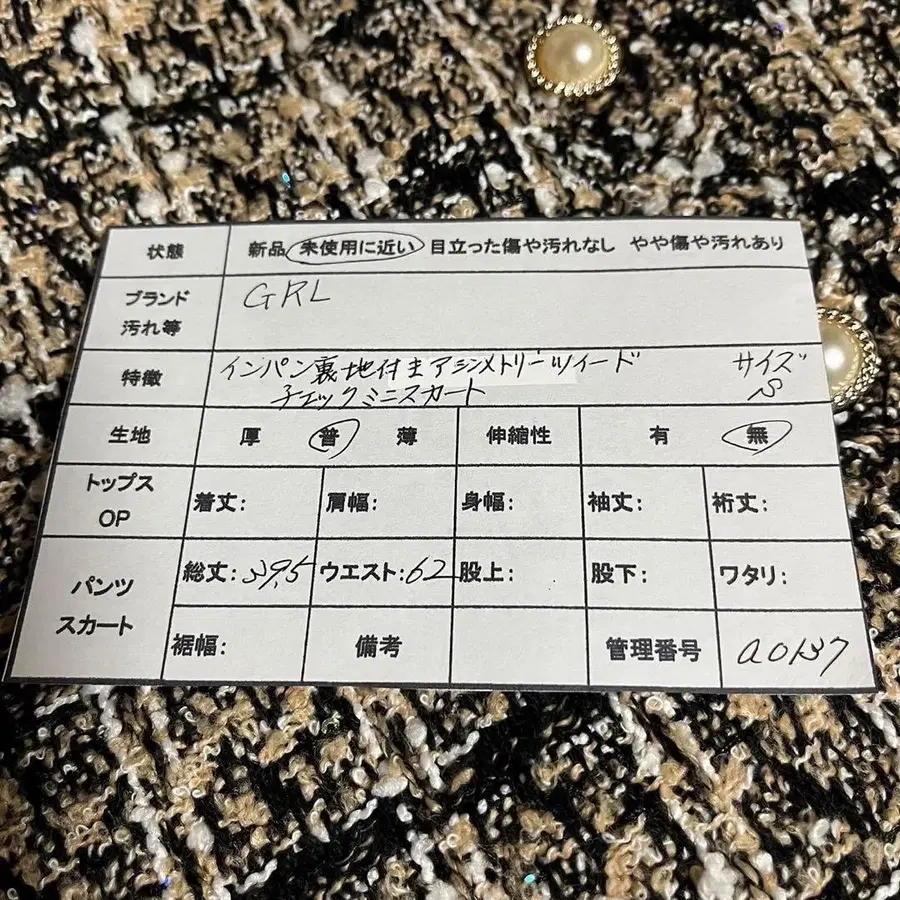 状態 新品 未使用に近い 目立った傷や汚れなし やや傷や汚れあり
ブランド GRL
汚れ等
特徴 インパン裏地付きアシンメトリーツイード サイズ
チェックミニスカート S
生地 厚 普 薄 伸縮性 有 無
トップス
OP 着丈: 肩幅: 身幅: 袖丈: 裄丈:
パンツ
スカート
総丈:39,5 ウエスト:62 股上: 股下: ワタリ:
裾幅: 備考 管理番号 a0137